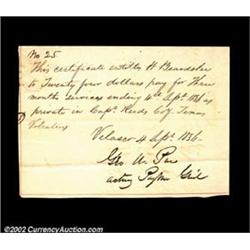 No 25
This certificate entitles H. Beardslee
to Twenty four dollars pay for Three
months services ending 4th Sept. 1836 as
private in Capt. Reeds Coy. Texas
Volunteers
Velasco 4 Sept. 1836.
Geo W.
acting Paymr Genl
© 2002 CurrencyAuction.com